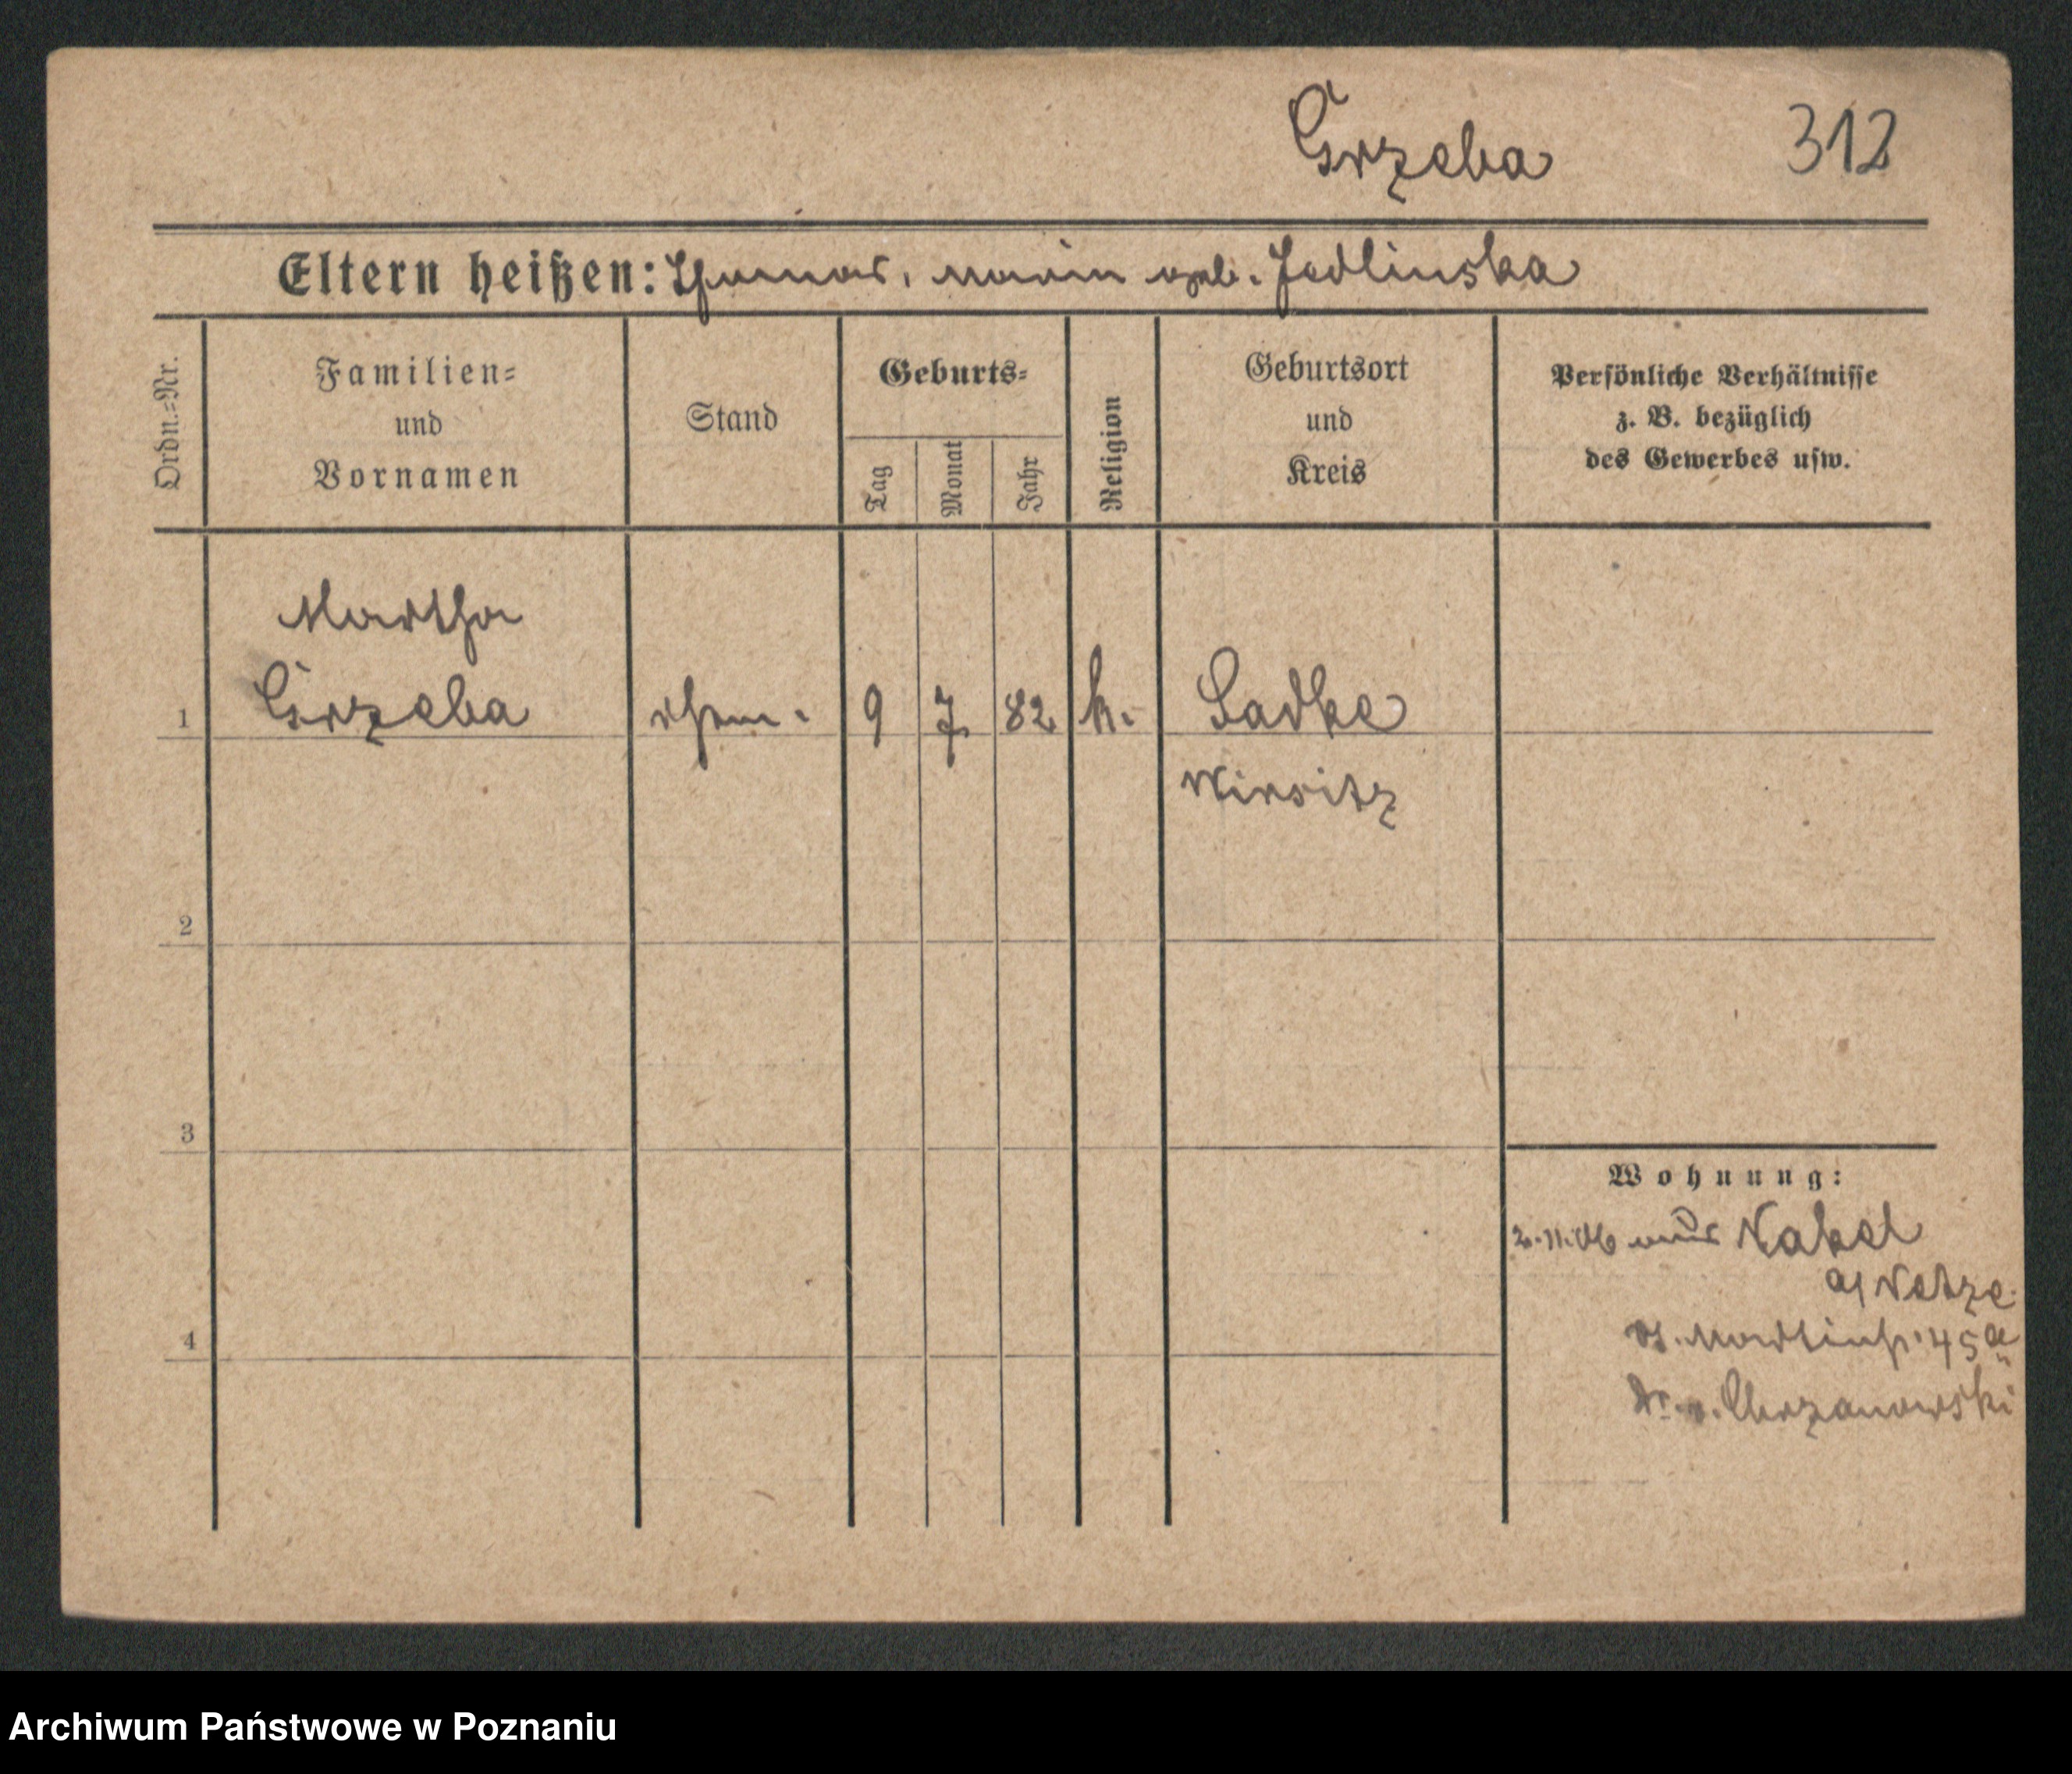 Grzeba 312
Eltern heißen: Thomas, Maria geb. Jedlinska
Ordn.=Nr.
Familien=
und
Vornamen
Stand
Geburts=
Tag
Monat
Jahr
Religion
Geburtsort
und
Kreis
Persönliche Verhältnisse
z. B. bezüglich
des Gewerbes usw.
Martha
1 Grzeba 9 7. 82 k. Sadke
Wirsitz
2
3
4
Wohnung:
2.11.06 aus Nakel
a/Netze
St. Martinstr. 45a
Dr. v. Chrzanowski
Archiwum Państwowe w Poznaniu